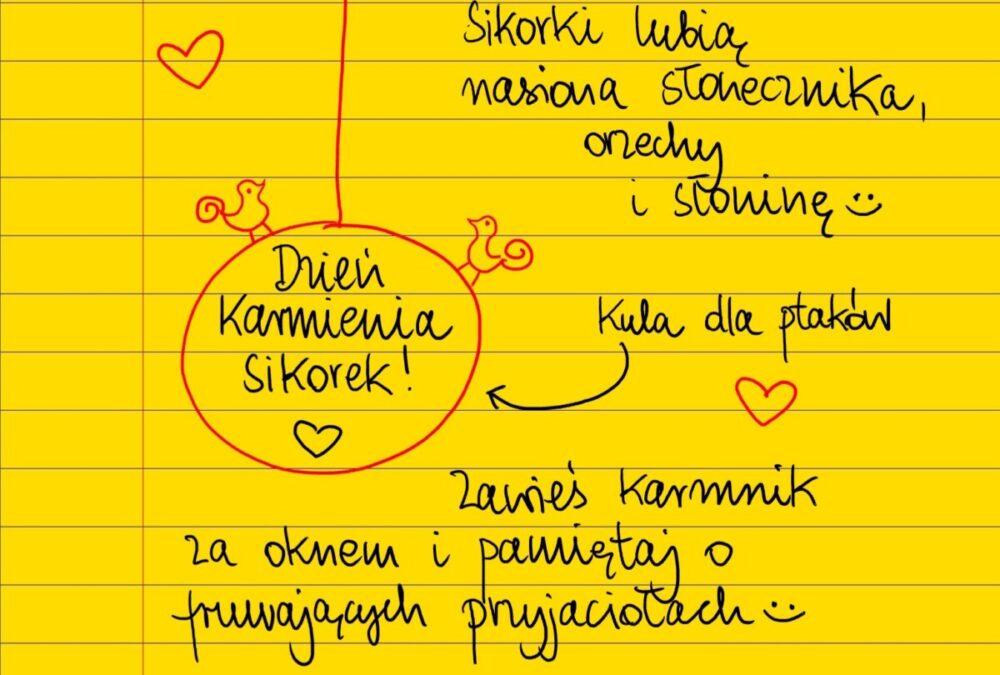 Sikorki lubią
nasiona słonecznika,
orzechy
i słoninę :)
Dzień
Karmienia
Sikorek!
Kula dla ptaków
Zawieś karmnik
za oknem i pamiętaj o
fruwających przyjaciołach :)